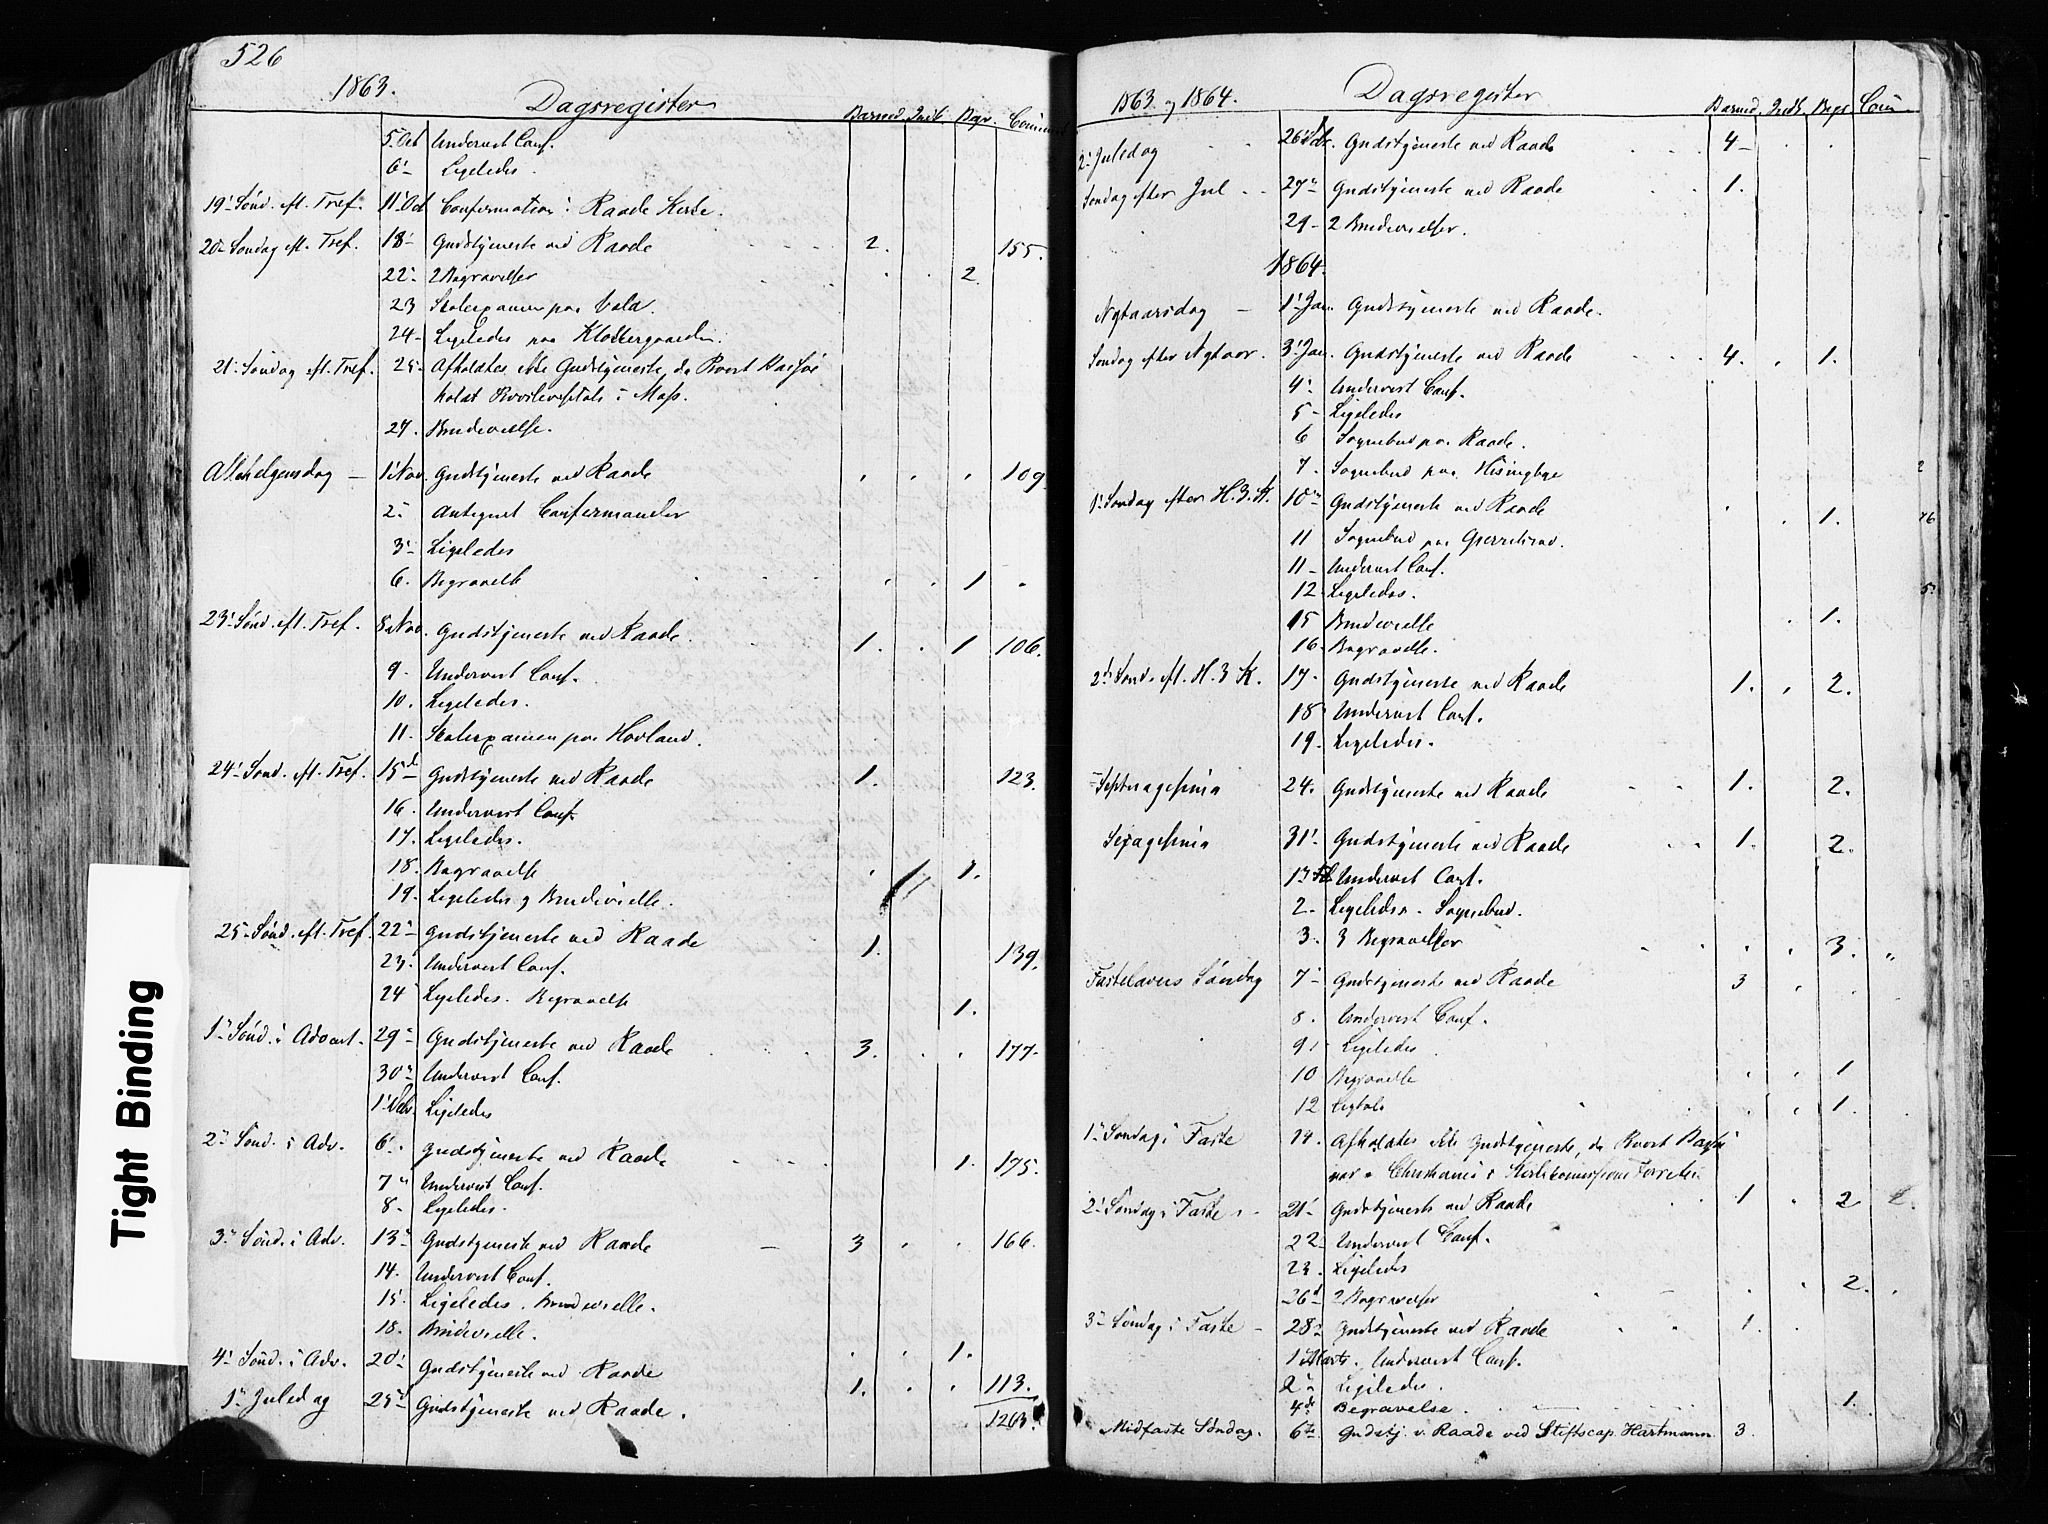 526
1863. Dagsregister Barned. Indt. Begr. Commun
5 Oct Undervist Conf.
6 Ligeledes.
19 Sønd. eft. Tref. 11 Oct Confirmation i Raade Kirke.
20 Søndag eft. Tref. 18 Gudstjeneste ved Raade 2. 155.
22 2 Begravelser 2
23 Skoleexamen paa
24 Ligeledes paa Klostergaarden.
21 Søndag eft. Tref. 25 Afholdtes ikke Gudstjeneste, da Provst
holdt i Moss.
27. Brudevielse.
Allehelgensdag 1 Nov. Gudstjeneste ved Raade 109
2 Antegnet Confirmander
3 Ligeledes
6. Begravelse 1
23 Sønd. eft. Tref. 8 Nov. Gudstjeneste ved Raade. 1. 1 106.
9. Undervist Conf.
10. Ligeledes.
11. Skoleexamen paa Hovland.
24 Sønd. eft. Tref. 15 Gudstjeneste ved Raade 1. 123.
16. Undervist Conf.
17. Ligeledes.
18. Begravelse 1.
19. Ligeledes og Brudevielse.
25 Sønd. eft. Tref. 22 Gudstjeneste ved Raade 1. 139.
23. Undervist Conf.
24 Ligeledes. Begravelse 1.
1 Sønd. i Advent. 29 Gudstjeneste ved Raade 3. 177.
30 Undervist Conf.
1 Dec. Ligeledes
2 Sønd. i Adv. 6 Gudstjeneste ved Raade 1. 175.
7 Undervist Conf.
8 Ligeledes.
3 Sønd. i Adv. 13 Gudstjeneste ved Raade 3 166.
14. Undervist Conf.
15. Ligeledes. Brudevielse.
18. Brudevielse.
4 Sønd. i Adv. 20 Gudstjeneste ved Raade 1.
1 Juledag 25 Gudstjeneste ved Raade. 1. 113.
1263.
1863 og 1864. Dagsregister Barned. Indt. Begr. Com
2 Juledag 26 Dec. Gudstjeneste ved Raade 4
Søndag efter Jul 27 Gudstjeneste ved Raade 1.
29 2 Brudevielser.
1864.
Nytaarsdag 1 Jan Gudstjeneste ved Raade.
Søndag efter Nytaar. 3 Jan. Gudstjeneste ved Raade 4. 1.
4 Undervist Conf.
5 Ligeledes
6 Sognebud paa Raade.
7. Sognebud paa Hisingbye 2
1 Søndag efter H. 3. K. 10 Gudstjeneste ved Raade 1. 76
11 Sognebud paa
11 Undervist Conf.
12 Ligeledes. 5
15 Brudevielse 1.
16. Begravelse.
2 Sønd. eft. H. 3 K. 17. Gudstjeneste ved Raade 1. 2.
18 Undervist Conf.
19. Ligeledes.
Septuagesima 24. Gudstjeneste ved Raade 1. 2.
Sexagesima 31 Gudstjeneste ved Raade 1. 2.
1 Feb Undervist Conf.
2. Ligeledes. Sognebud.
3. 3 Begravelser 3.
Fastelavens Søndag 7 Gudstjeneste ved Raade 3
8. Undervist Conf.
9 Ligeledes
10 Begravelse 1
12 Ligtale 1.
1 Søndag i Faste 14. Afholdtes ikke Gudstjeneste, da Provst
var i Christiania i
2 Søndag i Faste 21 Gudstjeneste ved Raade 1 2 2.
22 Undervist Conf.
23. Ligeledes
26 2 Begravelser 2.
3 Søndag i Faste 28 Gudstjeneste ved Raade 1.
1 Marts. Undervist Conf.
2 Ligeledes.
4de Begravelse. 1.
Midfaste Søndag. 6te Gudstj. v. Raade ved Stiftscap. Hartmann 3.
Tight Binding